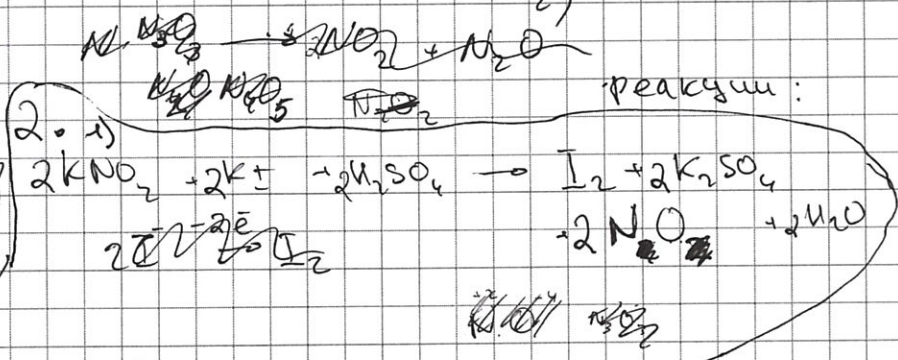 2)
N₃O₃ → 2NO₂ + N₂O
N₂O N₂O₅ N₂O₂ реакции:
2. 1)
2KNO₂ + 2KI + 2H₂SO₄ → I₂ + 2K₂SO₄
+2 NO + 2H₂O
2I⁻ - 2ē → I₂